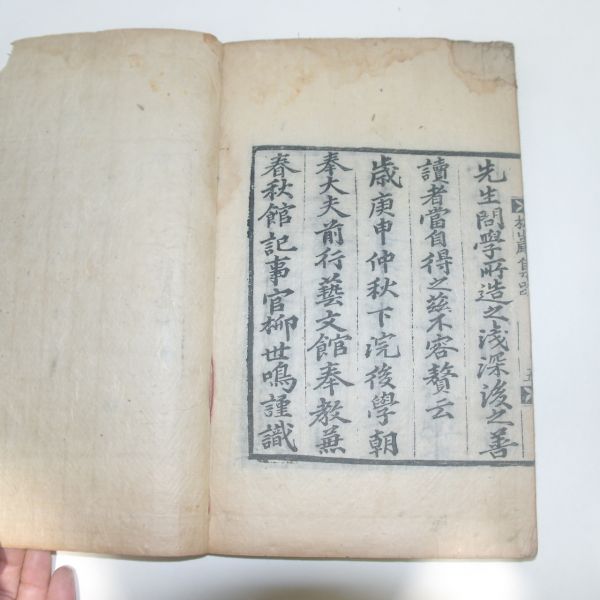 先生問學所造之淺深後之善
讀者當自得之玆不容贅云
歲庚申仲秋下浣後學朝
奉大夫前行藝文館奉教兼
春秋館記事官柳世鳴謹識